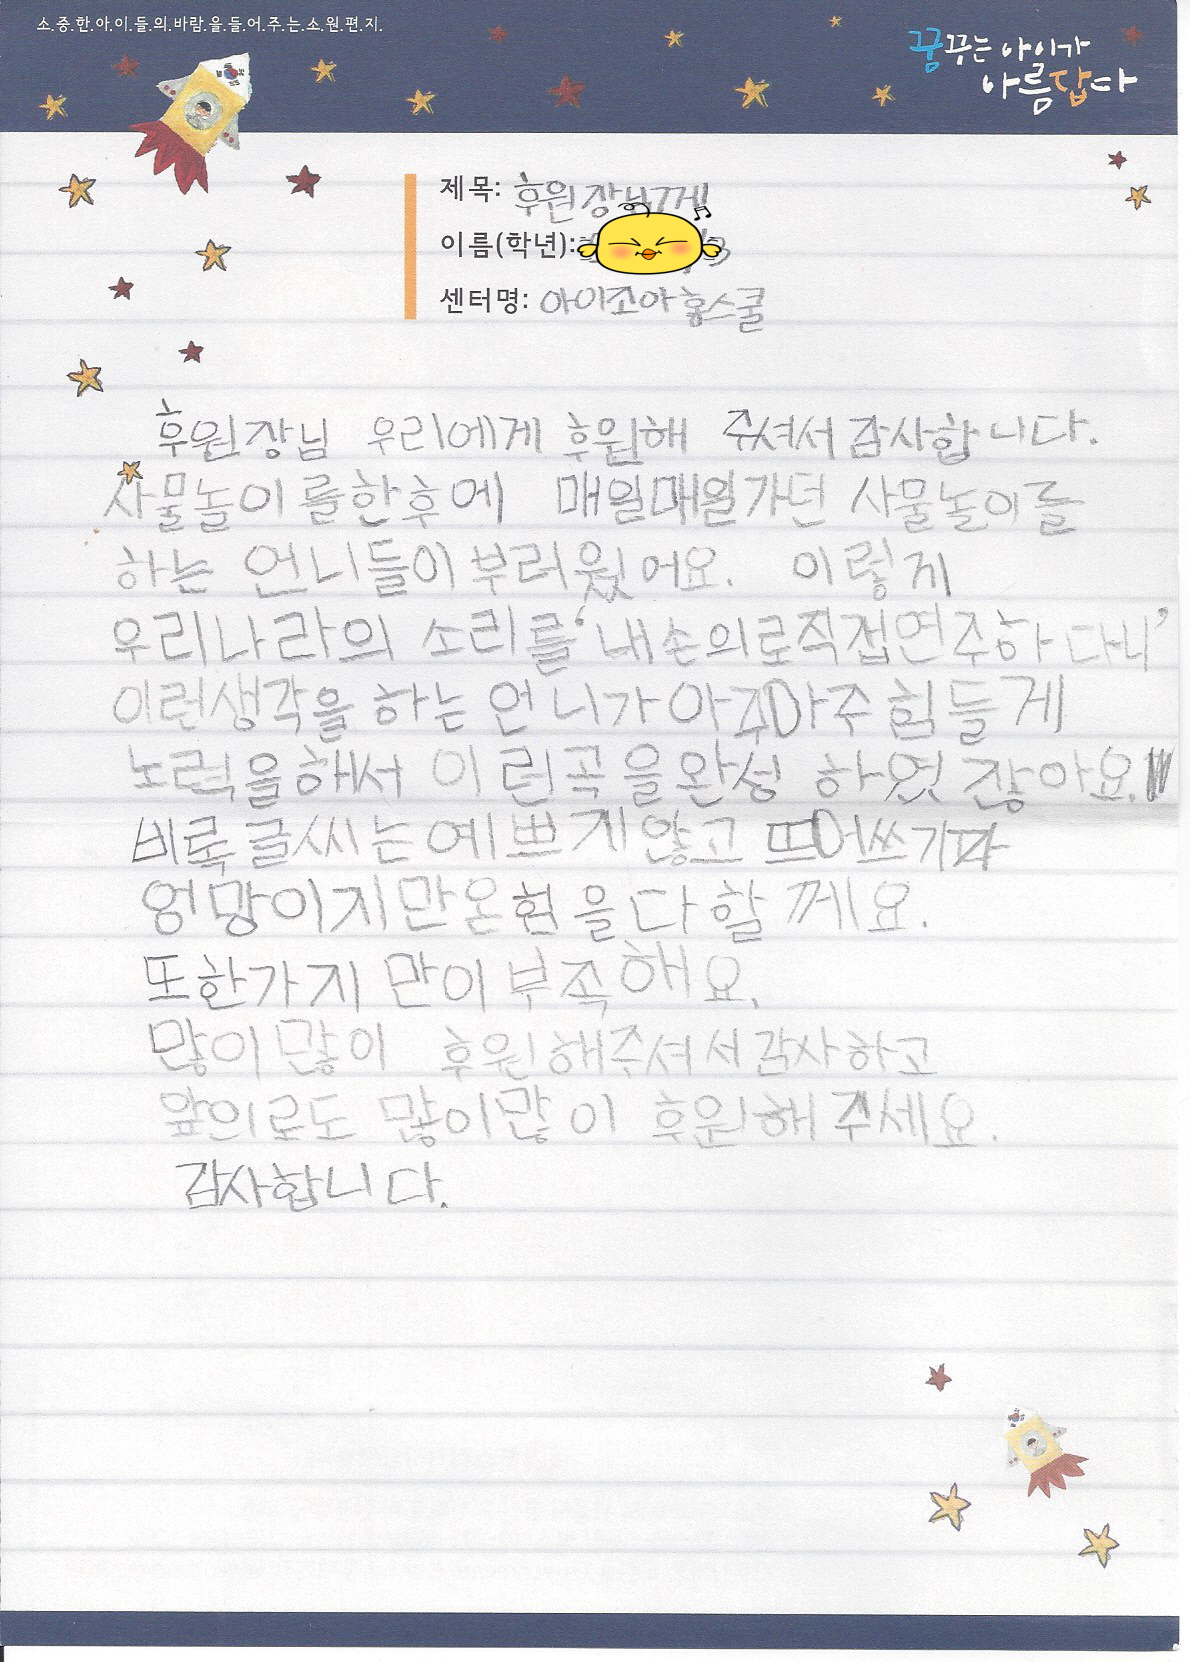 소.중.한.아.이.들.의.바.람.을.들.어.주.는.소.원.편.지.
꿈꾸는 아이가
아름답다
제목: 후원장님께
이름(학년): 3
센터명: 아이조아홈스쿨
후원장님 우리에게 후원해 주셔서 감사합니다.
사물놀이를한후에 매일매일가던 사물놀이를
하는 언니들이 부러웠어요. 이렇게
우리나라의 소리를 '내손의로직접연주하다니'
이런생각을 하는 언니가 아주아주 힘들게
노력을해서 이런곡을완성 하였잖아요.
비록글씨는예쁘게않고 뜨어쓰기따
엉망이지만온힘을다할께요.
또한가지 만이 부족해요.
많이많이 후원해주셔서감사하고
앞의로도 많이많이 후원해주세요.
감사합니다.